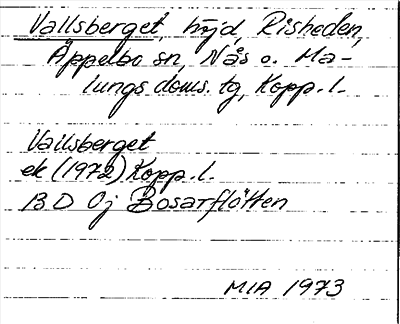 Vallsberget, höjd, Risheden,
Äppelbo sn, Nås o. Ma-
lungs doms. tg, Kopp. l.
Vallsberget
ek (1972) Kopp. l.
13 D 0j Bosarflötten
MIA 1973